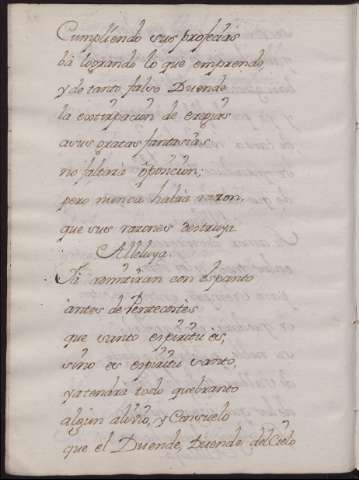 Cumpliendo sus profecias
bá logrando lo que emprende
y de tanto falso Duende
la extirpacion de
a sus gratas fantasias
no faltará oposicion;
pero nunca habrá razon,
que sus razones destruya
Alleluya
Ya con espanto
antes de Pentecostes
que santo espiritu es,
sino es espiritu santo,
ya tendrá todo quebranto
algun alivio, y Consuelo
que el Duende, Duende del Cielo